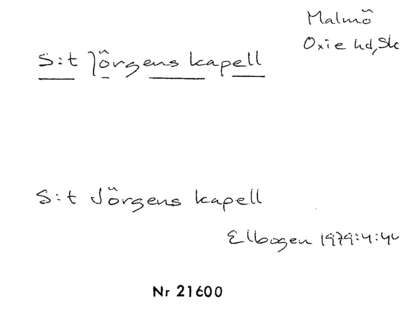 Malmö
Oxie hd, Sk
S:t Jörgens kapell
S:t Jörgens kapell
Elbogen 1979:4:44
Nr 21600